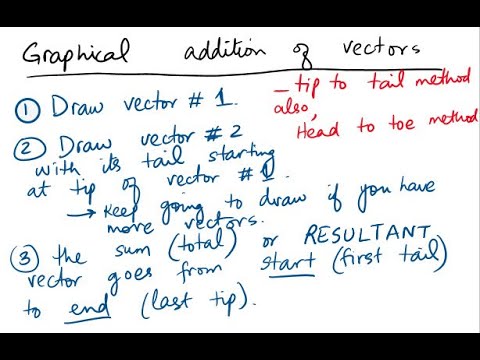 Graphical addition of vectors
① Draw vector # 1.
_ tip to tail method
also,
Head to toe method
② Draw vector # 2
with its tail starting
at tip of vector # 1.
→ Keep going to draw if you have
more vectors.
③ the sum (total) or RESULTANT
vector goes from start (first tail)
to end (last tip).